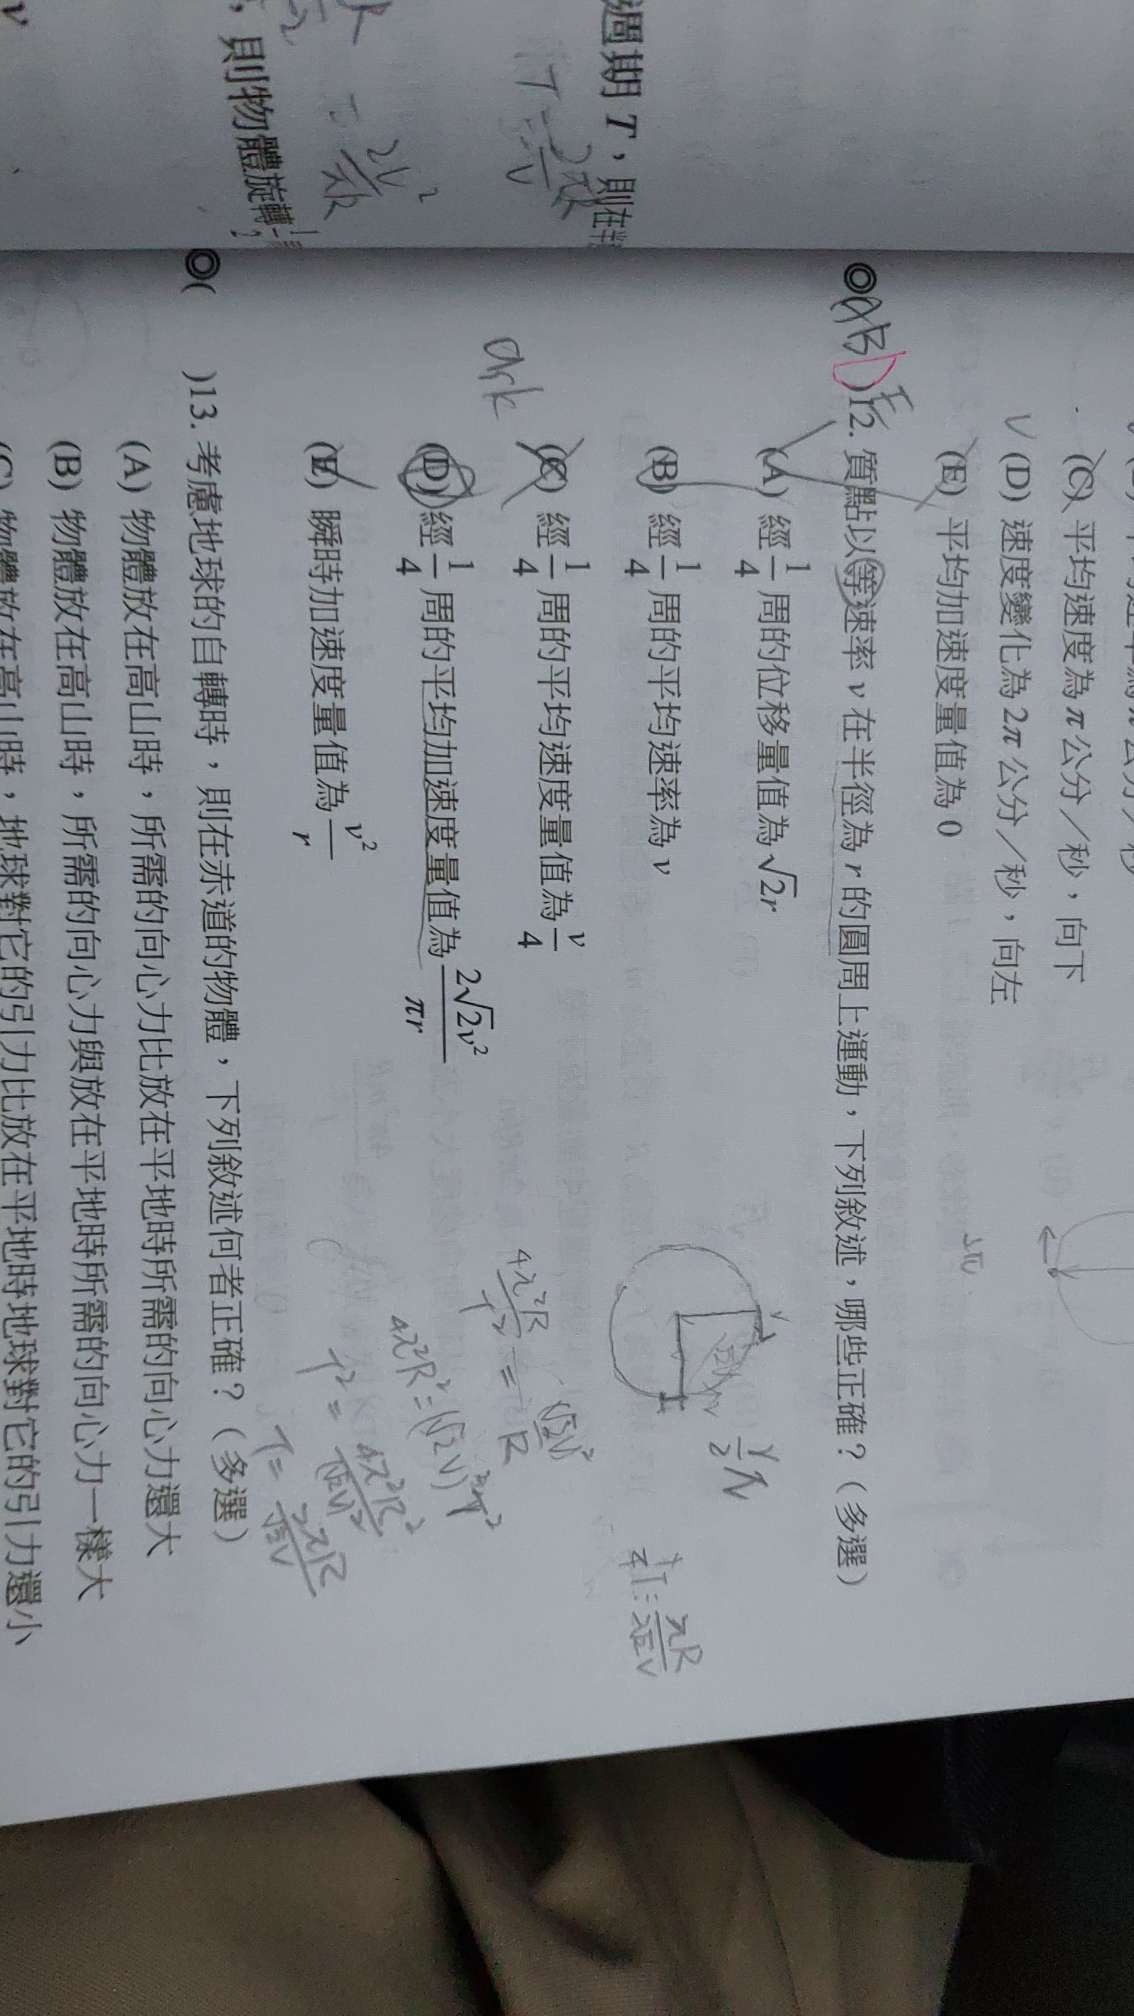 週期 T，則在半
T=2πR/V
，則物體旋轉一
(C) 平均速度為 π 公分／秒，向下
(D) 速度變化為 2π 公分／秒，向左
(E) 平均加速度量值為 0
◎(ABDE)12. 質點以等速率 v 在半徑為 r 的圓周上運動，下列敘述，哪些正確？（多選）
(A) 經 1/4 周的位移量值為 √2r
(B) 經 1/4 周的平均速率為 v
(C) 經 1/4 周的平均速度量值為 v/4
ask
(D) 經 1/4 周的平均加速度量值為 2√2v²/πr
(E) 瞬時加速度量值為 v²/r
◎( )13. 考慮地球的自轉時，則在赤道的物體，下列敘述何者正確？（多選）
(A) 物體放在高山時，所需的向心力比放在平地時所需的向心力還大
(B) 物體放在高山時，所需的向心力與放在平地時所需的向心力一樣大
(C) 物體放在高山時，地球對它的引力比放在平地時地球對它的引力還小